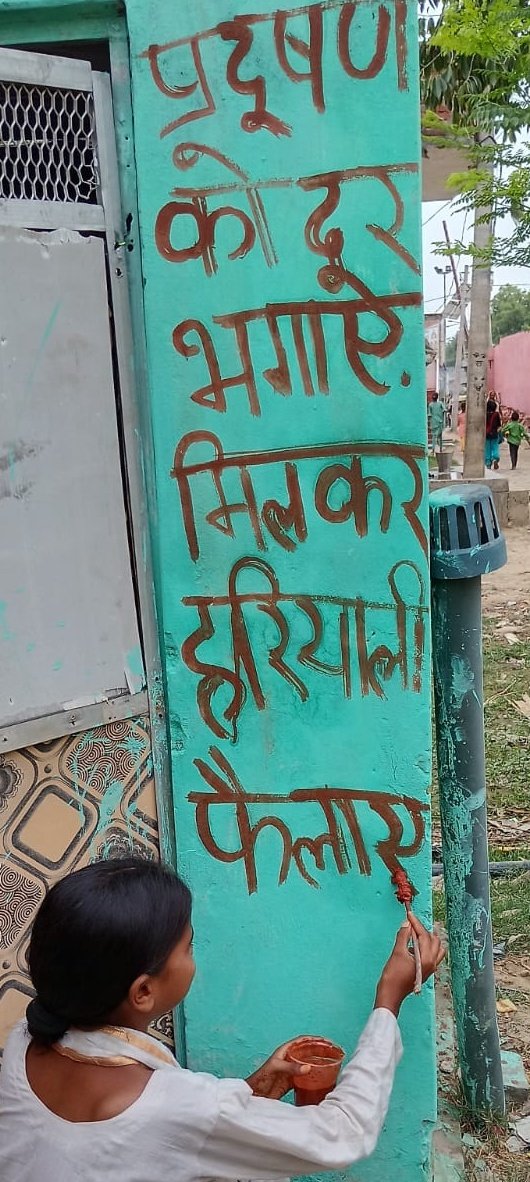 प्रदूषण
को दूर
भगाऐं
मिलकर
हरियाली
फैलाए